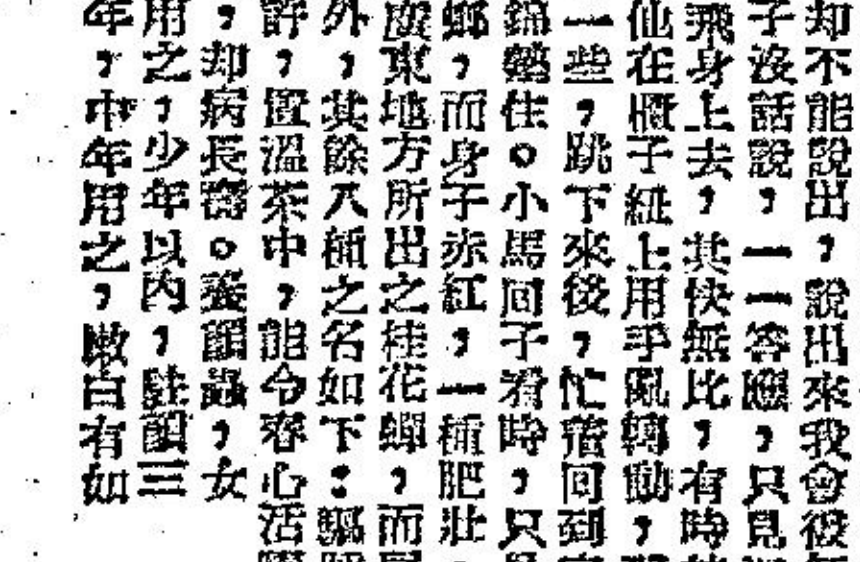 却不能說出，說出來我會役
子沒話說，一一答應，只見
飛身上去，其快無比，有時
仙在櫃子紐上用手亂轉動，
一些，跳下來後，忙着回到
錦鷄住。小馬回子看時，只
螂，而身子赤紅，一種肥壯
廣東地方所出之桂花蟬，而
外，其餘八種之名如下：驅
許，置溫茶中，能令春心活
，却病長壽。養顏蟲，女
用之，少年以內，駐顏三
年，中年用之，嫩白有如